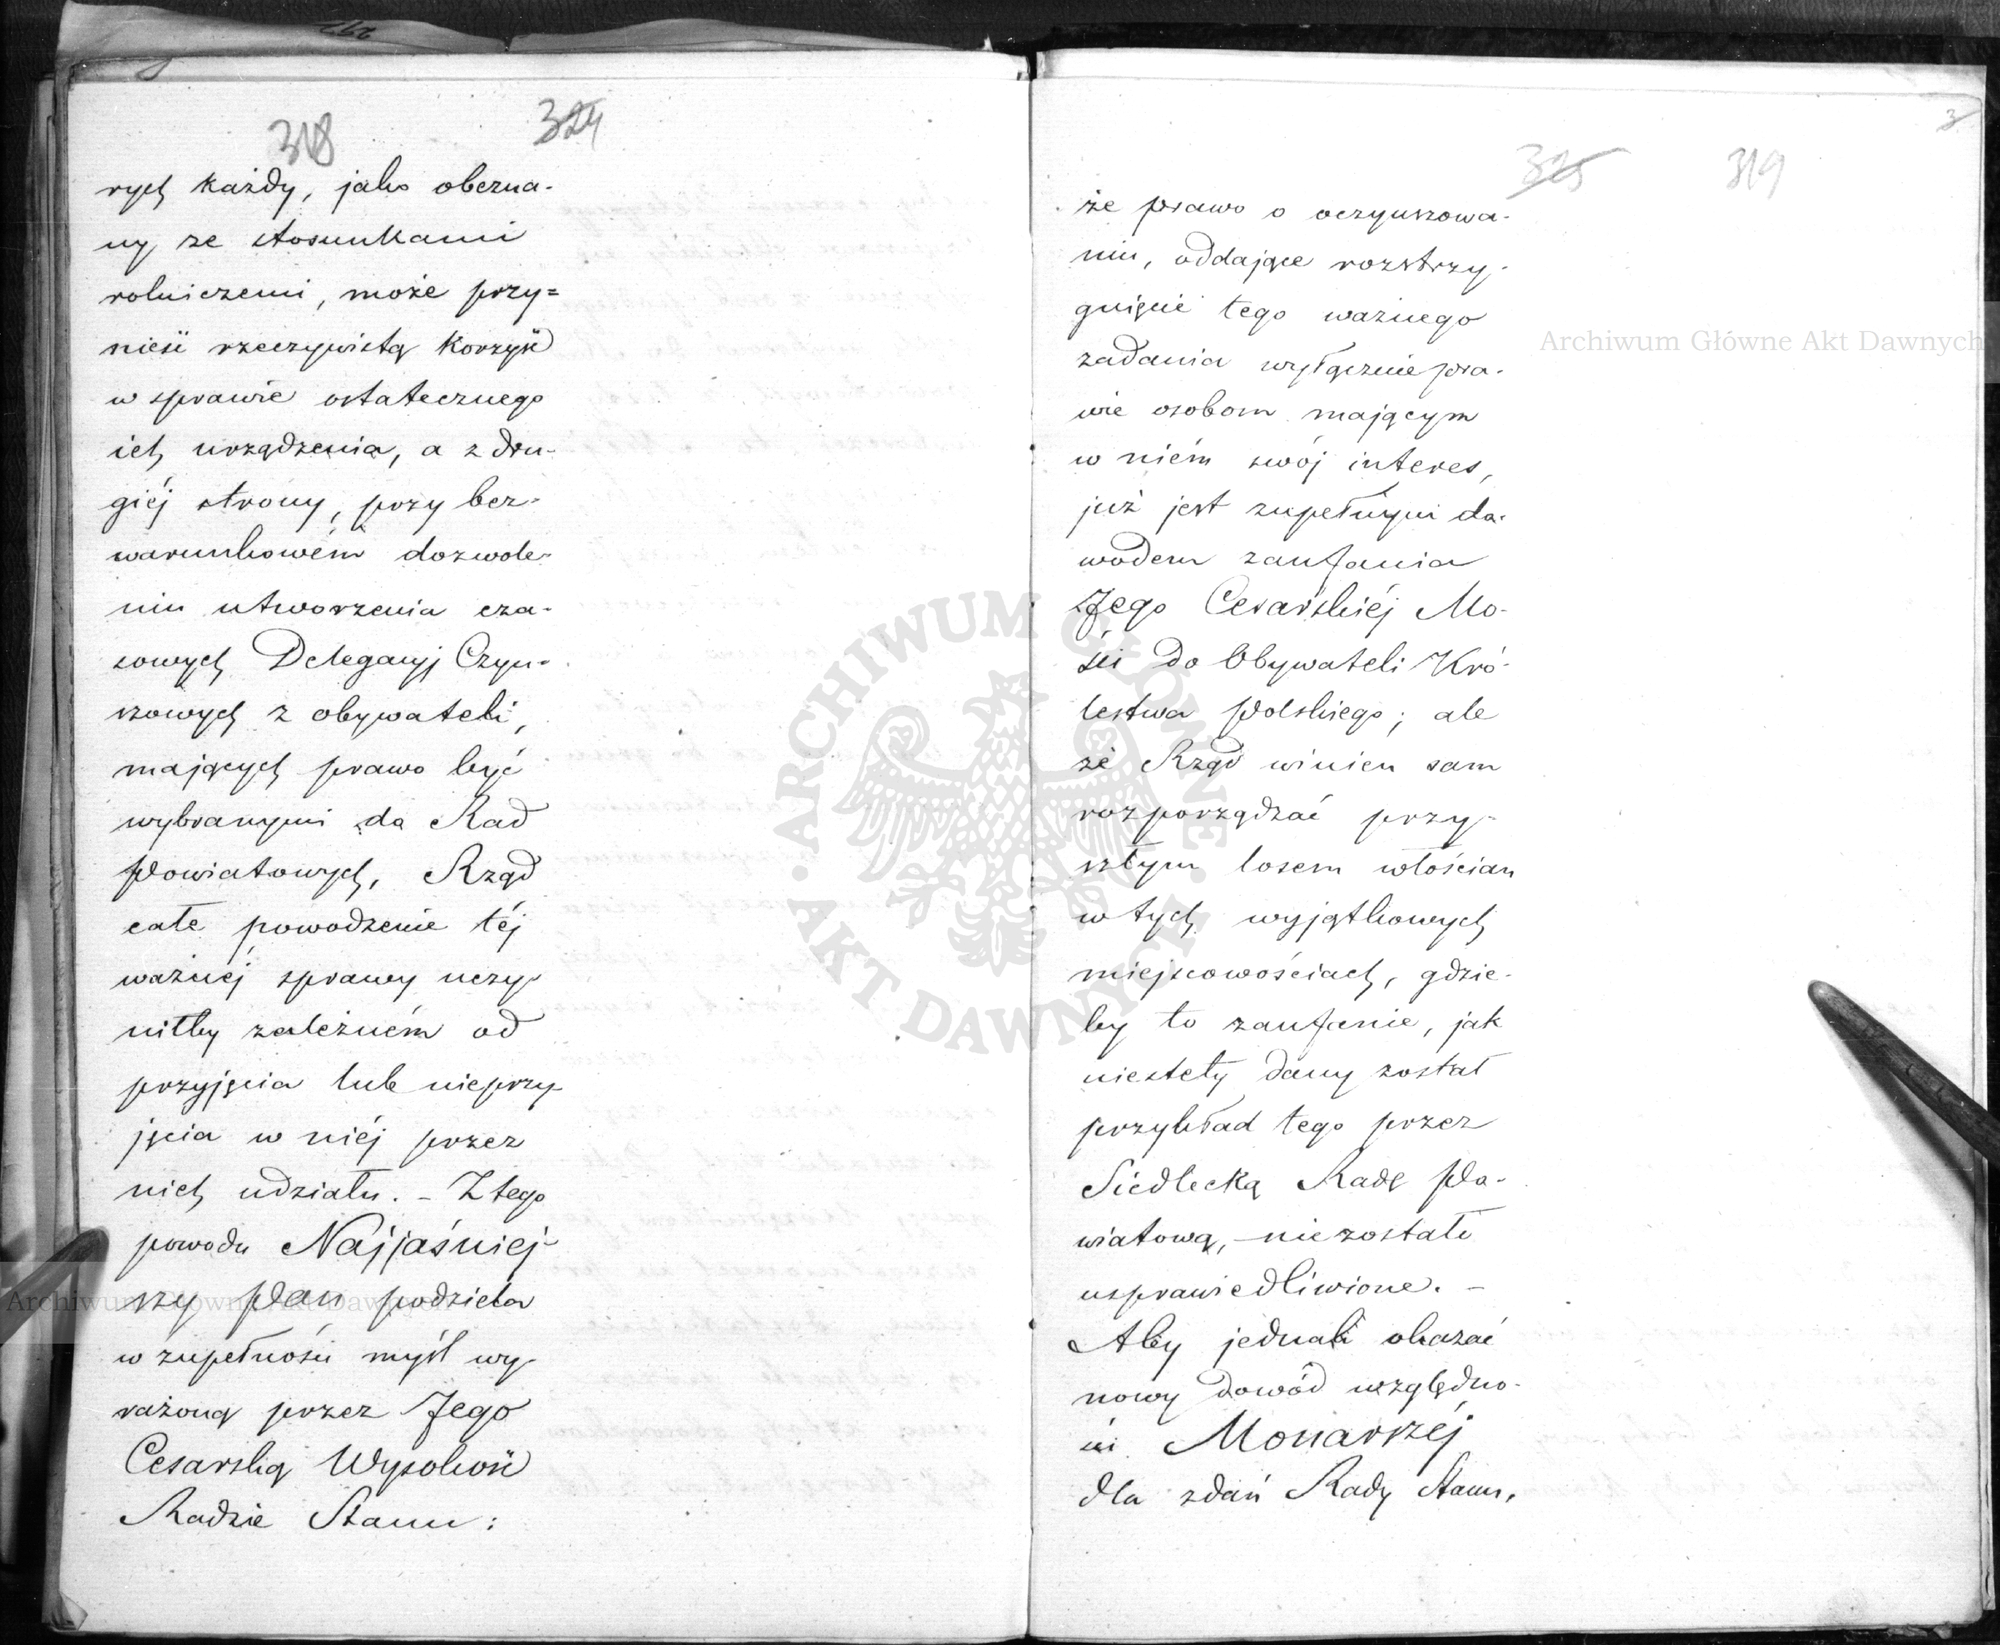 318 324
rych każdy, jako obezna-
ny ze stosunkami
rolniczemi, może przy=
nieść rzeczywistą korzyść
w sprawie ostatecznego
ich urządzenia, a z dru-
giéj strony, przy bez-
warunkowém dozwole-
niu utworzenia cza-
sowych Delegacyj Czyn-
szowych z obywateli,
mających prawo być
wybranymi do Rad
Powiatowych, Rząd
całe powodzenie téj
ważnéj sprawy uczy-
niłby zależném od
przyjęcia lub nieprzy-
jęcia w niéj przez
nich udziału. – Z tego
powodu Najjaśniej-
szy Pan podziela
w zupełności myśl wy-
rażoną przez Jego
Cesarską Wysokość
Radzie Stanu:
3
325 319
że prawo o oczynszowa-
niu, oddające rozstrzy-
gnięcie tego ważnego
zadania wyłącznie pra-
wie osobom mającym
w niém swój interes,
już jest zupełnym do-
wodem zaufania
Jego Cesarskiéj Mo-
ści do Obywateli Kró-
lestwa Polskiego; ale
że Rząd winien sam
rozporządzać przy-
szłym losem włościan
w tych wyjątkowych
miejscowościach, gdzie-
by to zaufanie, jak
niestety dany został
przykład tego przez
Siedlecką Radę Po-
wiatową, – nie zostało
usprawiedliwione. –
Aby jednak okazać
nowy dowód względno-
ści Monarszéj
dla zdań Rady Stanu,
Archiwum Główne Akt Dawnych
Archiwum Główne Akt Dawnych
ARCHIWUM GŁÓWNE · AKT DAWNYCH ·